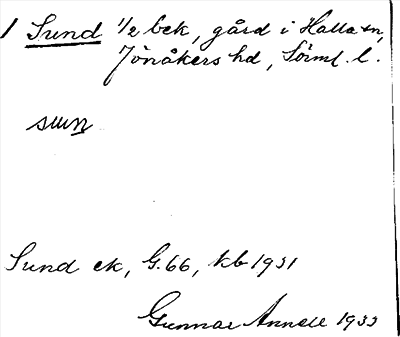 1 Sund 1/2 bek, gård i Halla sn,
Jönåkers hd, Sörml. l.
sun
Sund ek, G. 66, kb 1931
Gunnar Annell 1933